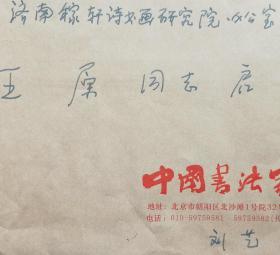 济南稼轩诗书画研究院办公室
王屎同志启
中国书法家
地址:北京市朝阳区北沙滩1号院32
电话:010-59759581 59759582(传
刘艺